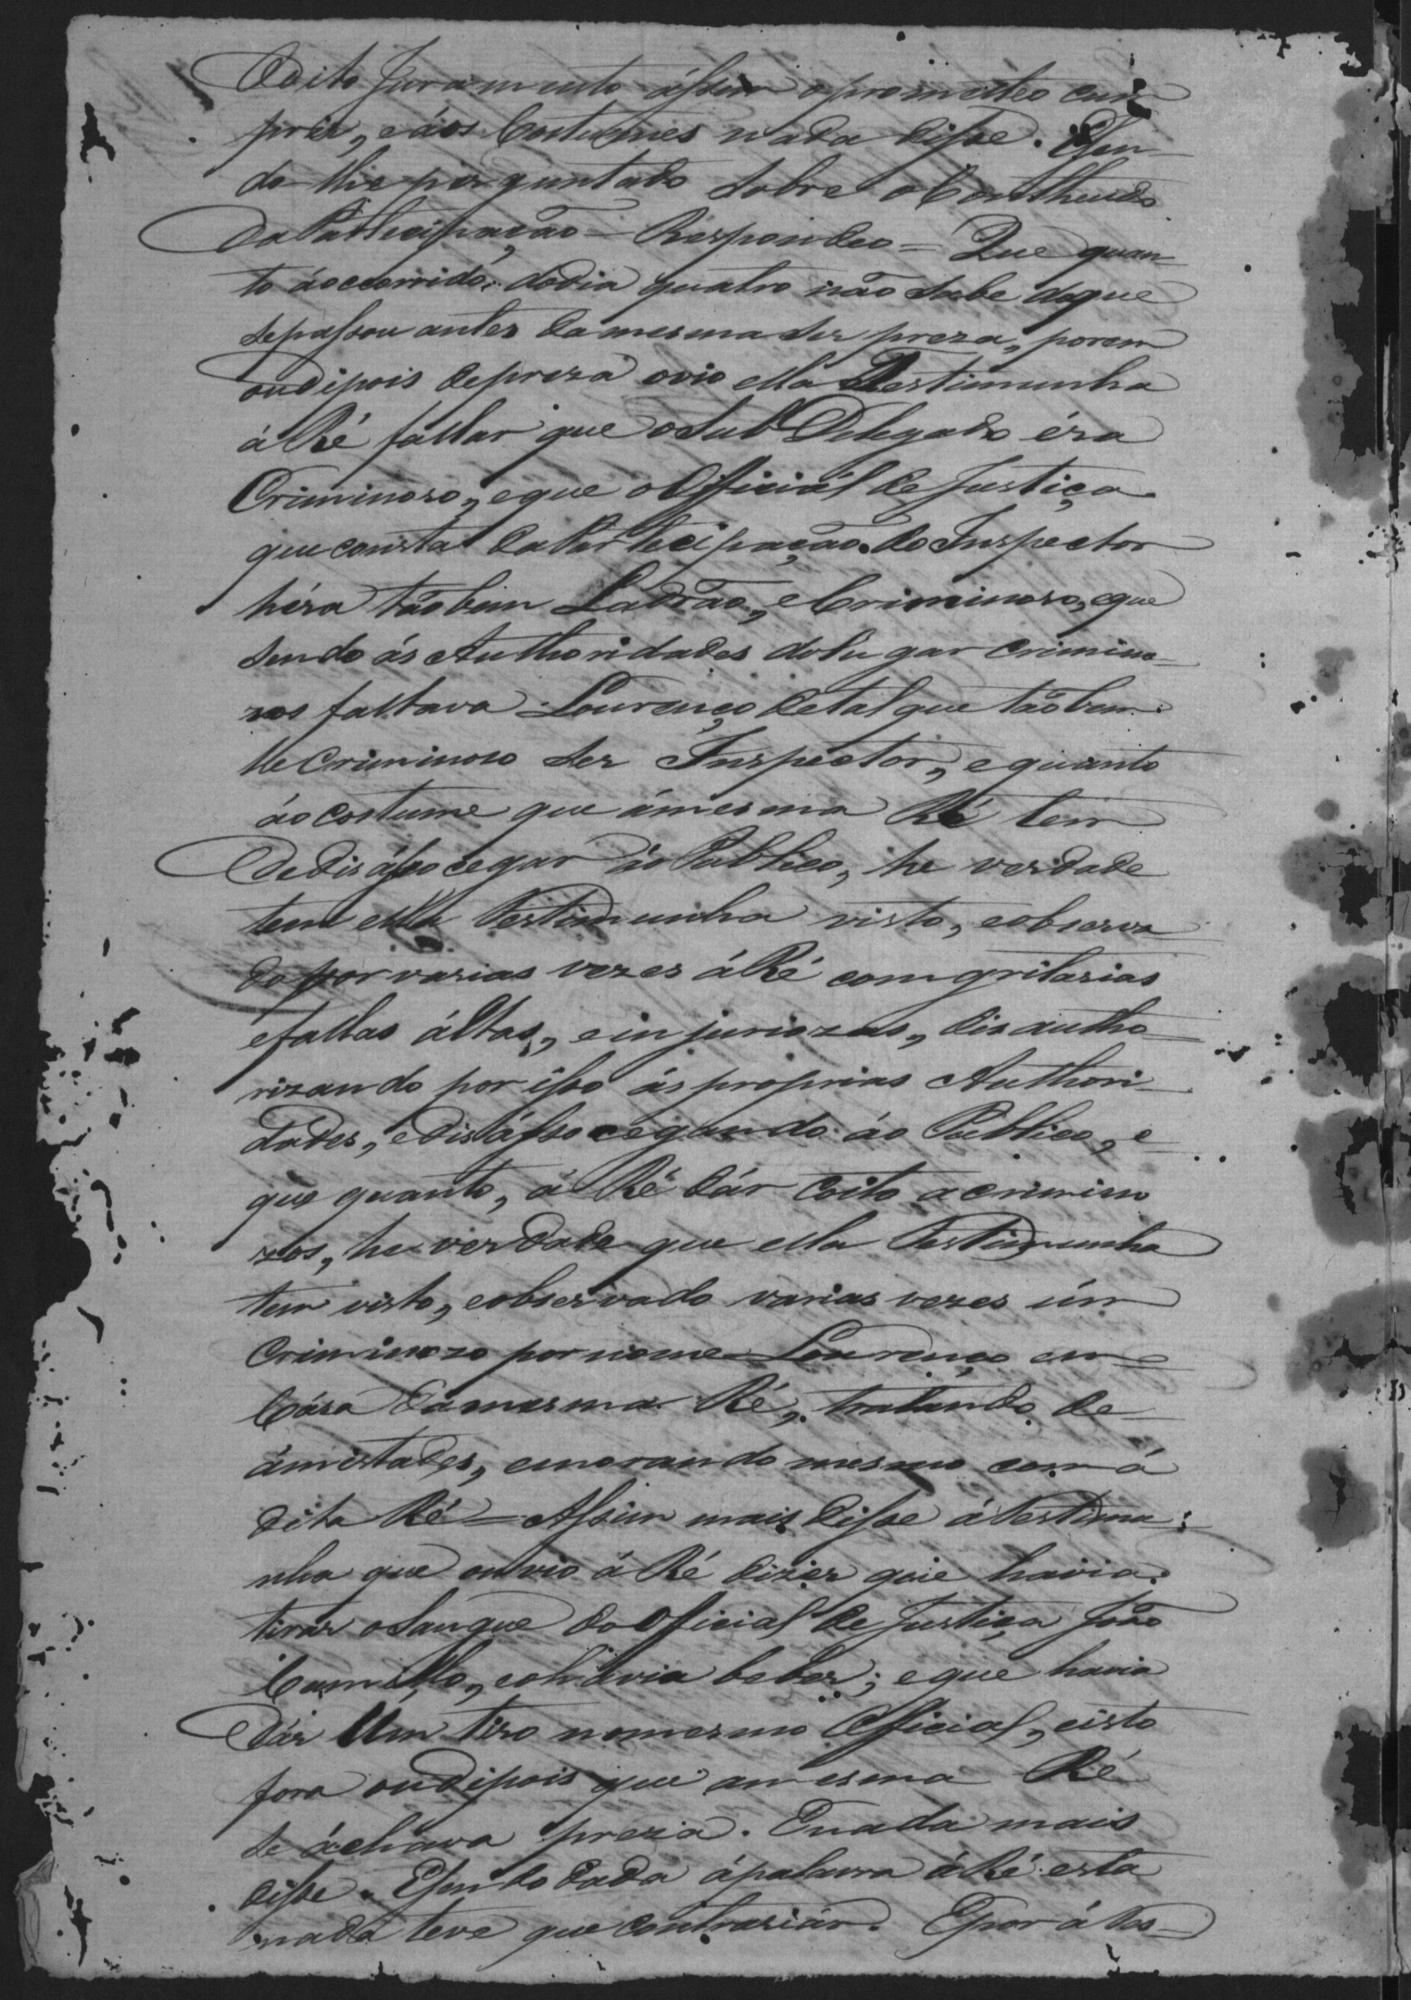 O dito Juramento assim o prometteo cum
prir, e aos Costumes nada disse. E sen-
do-lhe perguntado sobre o Contheudo
da Participação = Respondeo = Que quan-
to ao ccorrido, do dia quatro não sabe do que
se passou antes da mesma ser preza, porem
ou dipois de preza ovio ella Testimunha
á Ré fallar que o Sub Delegado éra
Criminoso, e que o Official de Justiça
que consta da Participação do Inspector
héra tãobem Ladrão, e Criminoso, e que
sendo ás Authoridades do lugar Crimino-
zos faltava Lourenço de tal que tãobem
he Criminoso ser Inspector, e quanto
áo costume que á mesma Ré tem
de disassocegar ao Publico, he verdade
tem ella Testimunha visto, e observa
do por varias vezes á Ré com gritarias
e fallas áltas, e injuriozas, disautho-
rizando por isso ás proprias Authori-
dades, e disássocegando áo Publico, e
que quanto, á Ré dár Coito a crimino
zos, he verdade que ella Testimunha
tem visto, e observado varias vezes úm
Criminozo por nome Lourenço em
Cáza da mesma Ré, tratando de
ámistades, e morando mesmo com á
dita Ré = Assim mais disse á Testimu-
nha que ouvio á Ré dizer que havia
tirar o Sangue do Official de Justiça João
Camillo, e o havia beber; e que havia
dár Um tiro no mesmo Official, e isto
fora ou dipois que a mesma Ré
se áchava preza. E nada mais
disse. E sendo dada á palavra á Ré esta
nada teve que contrariár. E por á Tes-